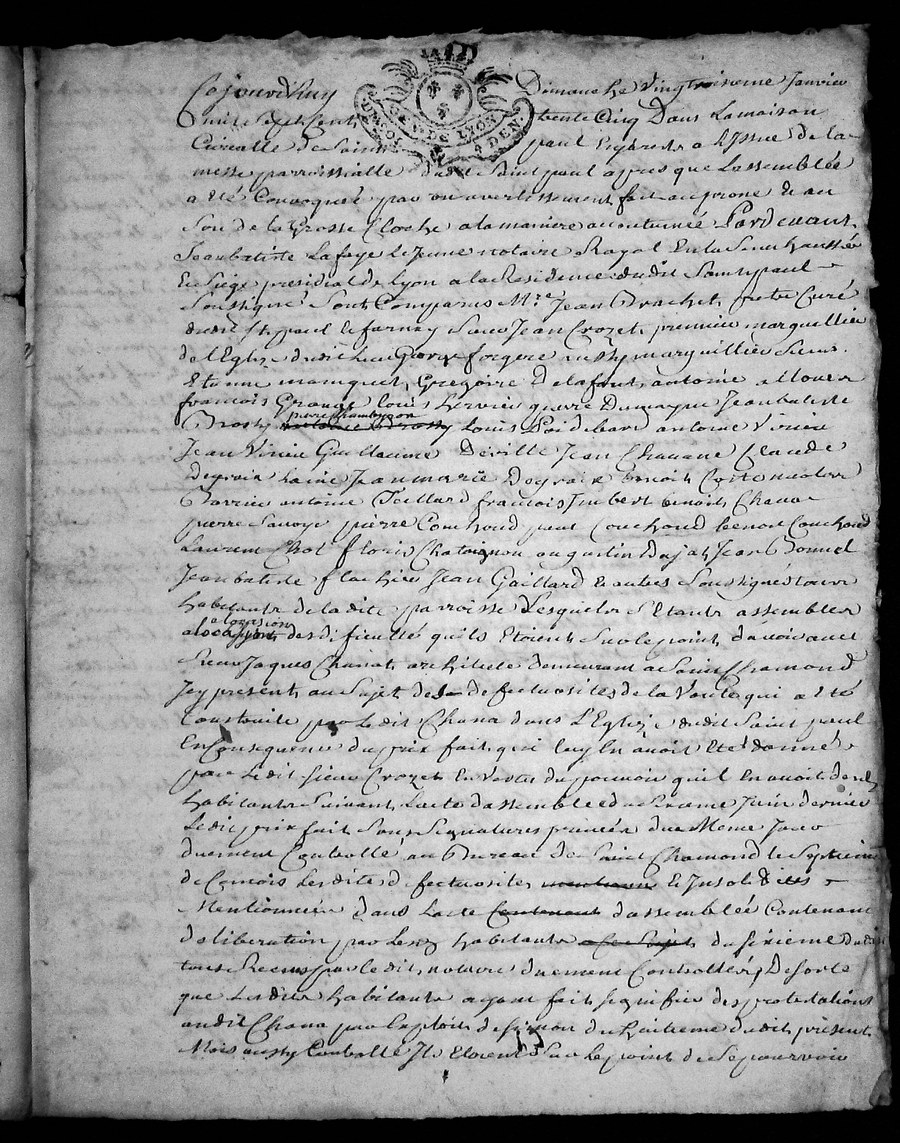 Cejourdhuy Dimanche vingtroisieme Janvier
mil sept cent trente Cinq Dans La maison
GEN DE LYON
DEUX SOLS 4 DEN
Curialle de Saint paul En Jarests a Lissue de la
messe parroissialle dudit Saint paul apres que Lassemblée
a eté Convoquée par un avertissement fait au prone & au
Son de la Grosse Cloche a la maniere accoutumée Pardevant
Jean batiste Lafaye Le Jeune notaire Royal En la Senechaussée
Et Siege presidial de Lyon a la Residence dudit Saint paul
Soussigné Sont Comparus Mre Jean Brachet pretre Curé
dudit St paul le farney Sieur Jean Crozet premier marguillier
de l'Eglize dudit lieu forgere aussy marguillier Sieurs
Etienne mamquet, Gregoire Delafont, antoine allouer
francois Grangé Louis Hervier pierre Dumayne Jean batiste
Brossy pierre Louis Poidebard antoine Virieu
Jean Virieu Guillaume Deville Jean Chavane Claude
Degraix Laine Jean marie Degraix Benoit Coste nicolas
Barrieu antoine Teillard francois Imbert benoit Chana
pierre Savoye pierre Couchoud paul Couchoud benoit Couchoud
Laurent Chol floris Chataignon augustin Dujat Jean Bonnel
Jean batiste flachier Jean Gaillard & autres Soussignés tous
habitants de la dite parroisse Lesquels S'Etants assembles
a locasion des dificulté qu'ils Etoient Sur le point davoir avec
Sieur Jaques Chanat architecte demeurant a Saint Chamond
Jcy present au Sujet des defectuosites de la Voute qui a eté
Construite par Ledit Chana dans L'Eglize dudit Saint paul
En Consequence du prix fait qui luy En avoit eté donné
par Ledit Sieur Crozet En Vertu du pouvoir quil En avoit desd
habitants Suivant Lacte dassemblée du Sixieme Juin dernier
Ledit prix fait Sous Signatures privées du Meme Jour
duement Controllé au Bureau de Saint Chamond le Septieme
de Ce mois Les dites defectuosites & Insolidités
Mentionnées dans Lacte dassemblée Contenant
deliberation par Lesd habitants du Sixieme dudit
tous Recus par Ledit notaire duement Controllés, De Sorte
que Lesdits habitants ayant fait signifier des protestations
audit Chana par Exploit de simon du Huitieme dudit present
Mois aussy Controllé Ils Etoient Sur le point de Se pourvoir